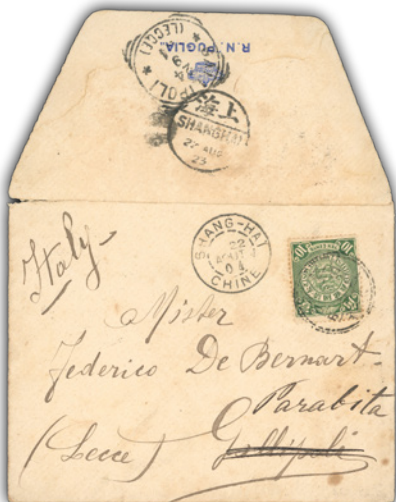 R.N. PUGLIA
(LECCE)
上海
SHANGHAI
27 AUG
23
SHANG-HAI
22
04
CHINE
10
10
Italy
Mister
Federico De Bernart
Parabita
(Lecce) Gallipoli